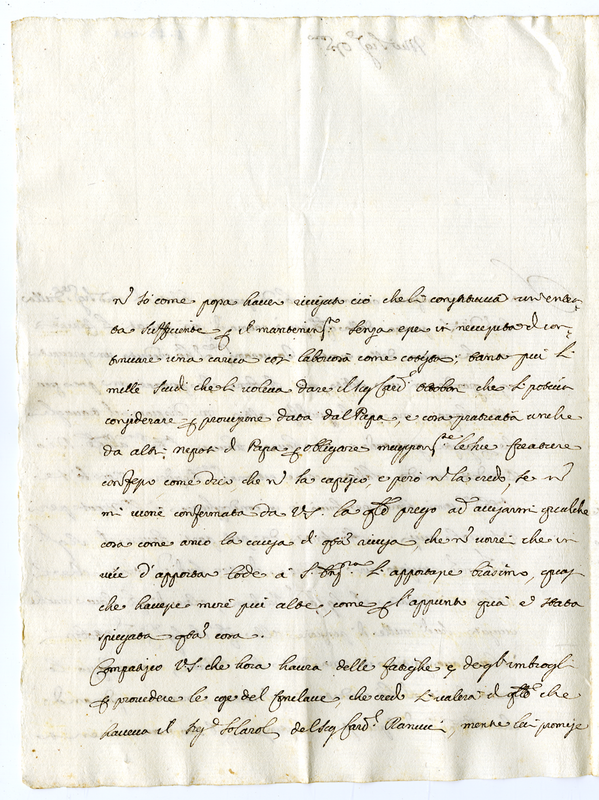 n. so come possa haver ricusato ciò che li constituiva un entra-
ta sufficiente p. il mantenim.to senza esser in necessità di con-
tinuare una carica così laboriosa come cotesta; tanto più li
mille scudi che li voleva dare il Sig. Card. che si potevan
considerare p. provisione data dal Papa, e cosa praticata anche
da altri nepoti di Papa p. obligare maggiorm.te le sue creature
confesso come dico che n. la capisco, e però n. la credo, se n.
mi viene confermata da VS. la q.le prego ad avisarmi qualche
cosa come anco la causa di q.sta ricusa, che n. vorrei che in
vece d'apportar lode a S. li apportasse biasimo, quasi
che havesse mire più alte, come p. l'appunto quà è stata
spiegata q.sta cosa.
Compatisco VS. che hora haurà delle fatighe e degl'imbrogli
p. provedere le cose del Conclave, che credo si valerà di q.llo che
haveva il Sig. del Sig. Card. Ranucci, mentre lei promesse